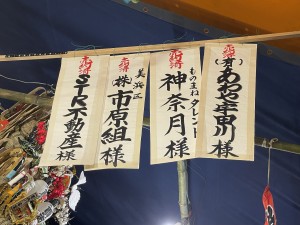 奉納
(有)あやや宝田川様
奉納
ものまねタレント
神奈月様
奉納
美浜区
(株)市原組様
奉納
STK不動産様